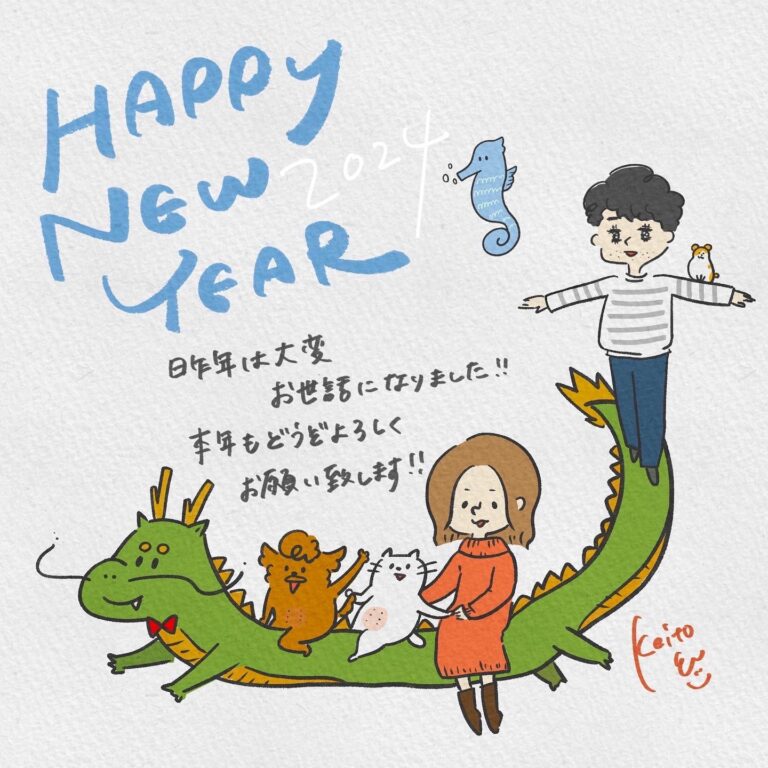 HAPPY
NEW 2024
YEAR
昨年は大変
お世話になりました!!
本年もどうぞよろしく
お願い致します!!
Keito